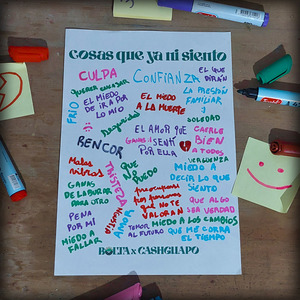 cosas que ya ni siento
CULPA
CONFIANZA
EL QUE
DIRÁN
QUERER ENCAJAR
EL MIEDO
DE IR A POR
LO MIO
FRIO
EL MIEDO
A LA MUERTE
LA PRESIÓN
FAMILIAR
SOLEDAD
Inseguridad
EL AMOR QUE
SENTÍ
POR ELLA
CAERLE
BIEN
A TODOS
RENCOR
VERGÜENZA
Malas
vibras
GANAS
DE LABORAR
PARA OTRO
TRISTEZA
QUE
PUEDO
MIEDO A
DECIR LO QUE
SIENTO
preocuparme
por personas
que NO TE
VALORAN
QUE ALGO
SEA VERDAD
PENA
POR MÍ
AMOR
MIEDO A
FALLAR
TEMOR
AL FUTURO
MIEDO A LOS CAMBIOS
QUE ME CORRA
EL TIEMPO
BOLTA x CASHGUAPO